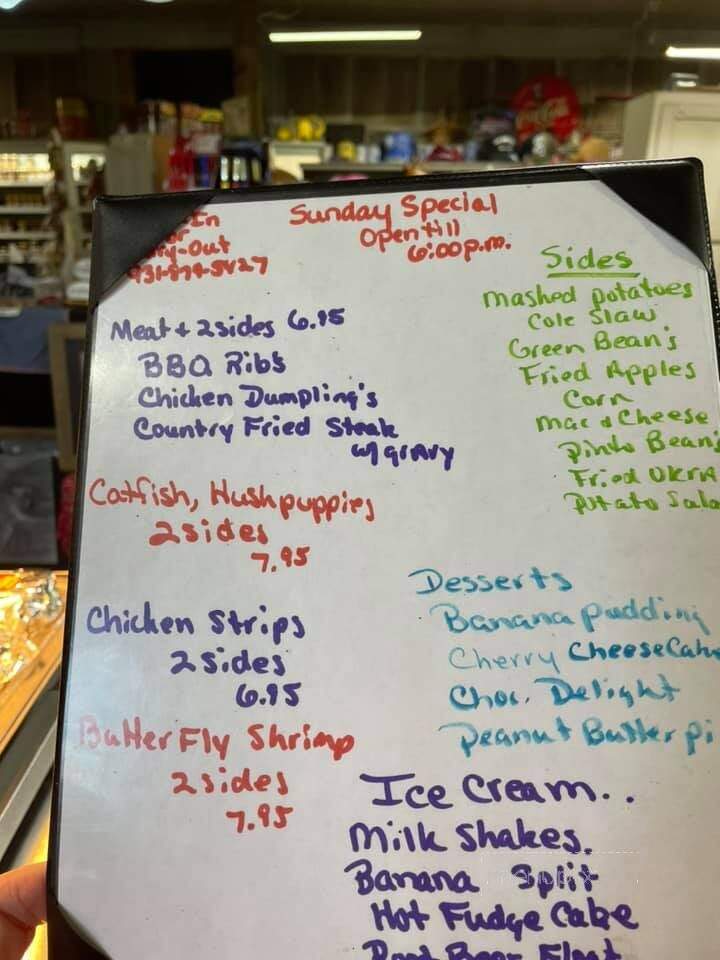 In
or
-Out
931-879-5427
Sunday Special
Open till
6:00 p.m.
Meat + 2 sides 6.95
BBQ Rib's
Chicken Dumpling's
Country Fried Steak
w/ gravy
Catfish, Hushpuppies
2 sides
7.95
Chicken Strips
2 sides
6.95
Butter Fly Shrimp
2 sides
7.95
Sides
Mashed potatoes
Cole Slaw
Green Bean's
Fried Apples
Corn
Mac & Cheese
Pinto Bean's
Fried OKRA
Potato Sala
Desserts
Banana pudding
Cherry CheeseCake
Choc. Delight
Peanut Butter pi
Ice Cream..
Milk Shakes.
Banana Split
Hot Fudge Cake
Root Beer Float